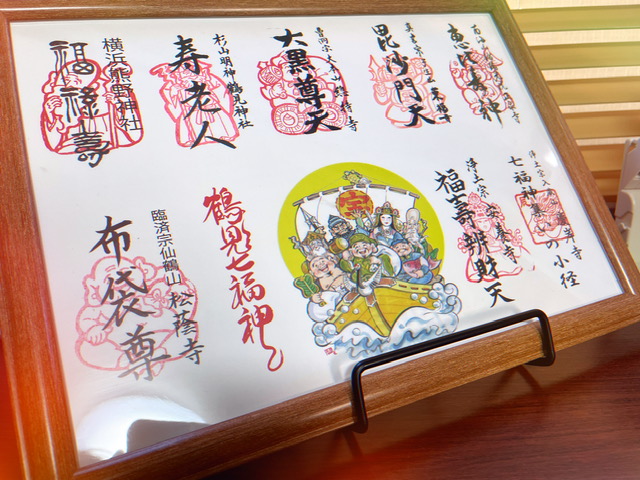 恵比寿神
毘沙門天
大黒尊天
杉山明神鶴見神社
寿老人
横浜熊野神社
福禄寿
浄土宗
七福神集いの小径
浄土宗
安養寺
福寿辨財天
宝
鶴見七福神
臨済宗仙鶴山
松蔭寺
布袋尊